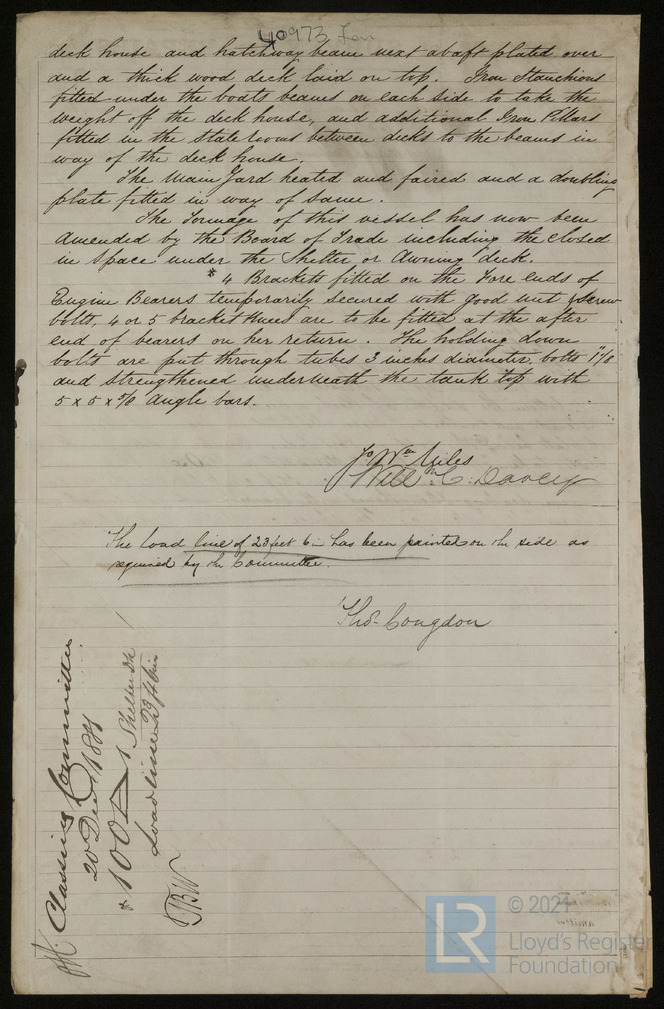 40973 Iron
deck house and hatchway beam next abaft plated over
and a thick wood deck laid on top. Iron Stanchions
fitted under the boats beams on each side to take the
weight off the deck house, and additional Iron Pillars
fitted in the state rooms between decks to the beams in
way of the deck house.
The Main Yard heated and faired and a doubling
plate fitted in way of same.
The Tonnage of this vessel has now been
amended by the Board of Trade including the closed
in space under the Shelter or Awning deck.
* 4 Brackets fitted on the Fore ends of
Engine Bearers temporarily secured with good nut & screw
bolts, 4 or 5 bracket knees are to be fitted at the after
end of bearers on her return. The holding down
bolts are put through tubes 3 inches diameter, bolts 1"1/8
and strengthened underneath the tank top with
5 x 5 x 5/8 Angle bars.
Jo Wm Miles
Will. C. Davey
The load line of 23 feet 6 in has been painted on the side as
required by the Committee.
Thos. Congdon
Classing Committee
20 Dec 1881
* 100 A 1 Shelter dk
Load line 23 ft 6 in
TBW
LR
© 2021
Lloyd's Register
Foundation